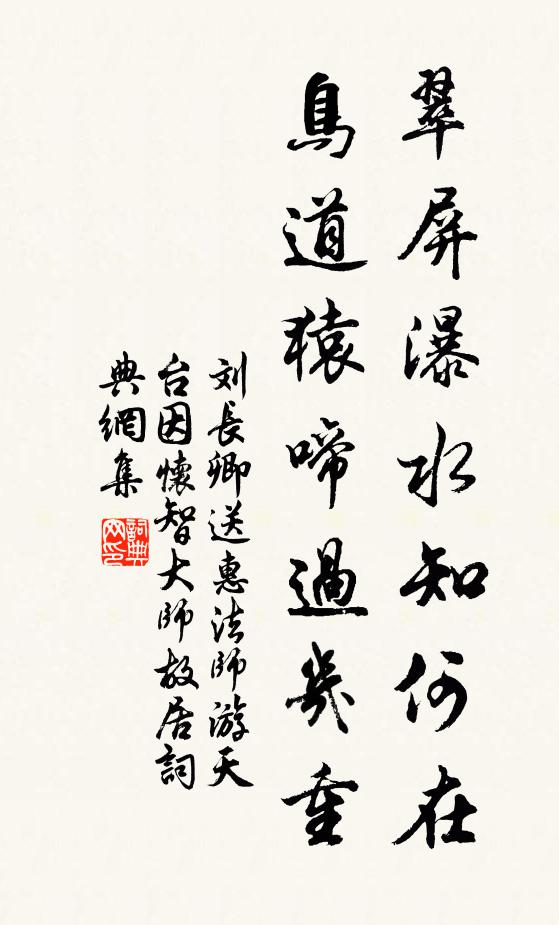 翠屏瀑水知何在
鳥道猿啼過幾重
刘長卿送惠法師游天
台因懷智大師故居詞
典網集
詞典网印